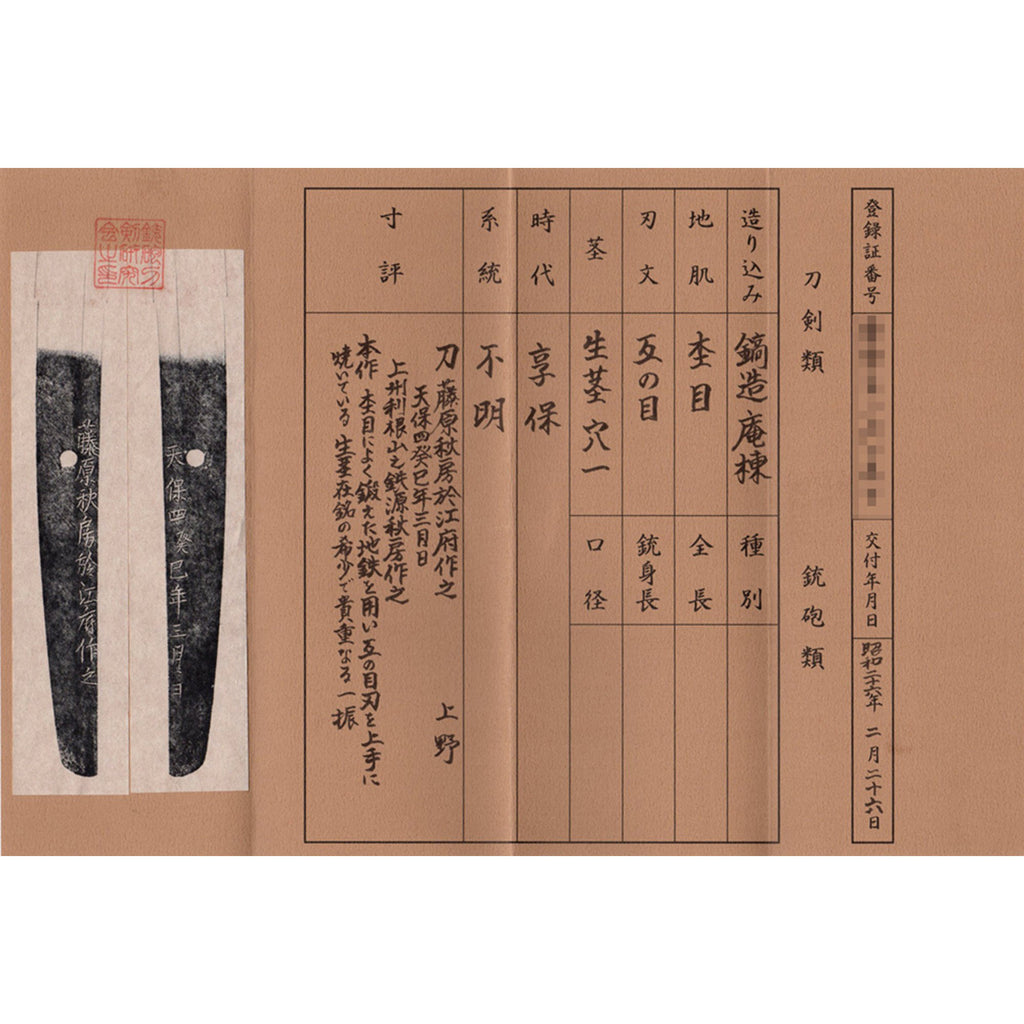 登録証番号
交付年月日
昭和二十六年 二月二十六日
刀剣類
銃砲類
造り込み
鎬造庵棟
種別
地肌
杢目
全長
刃文
互の目
銃身長
茎
生茎穴一
口径
時代
享保
系統
不明
寸評
刀 藤原秋房於江府作之 上野
天保四癸巳年三月日
上州利根山之鉄源秋房作之
本作 杢目によく鍛えた地鉄を用い互の目刃を上手に
焼いている 生茎在銘の希少で貴重なる一振
銃砲刀
剣研究
会之印
天保四癸巳年三月日
藤原秋房於江府作之